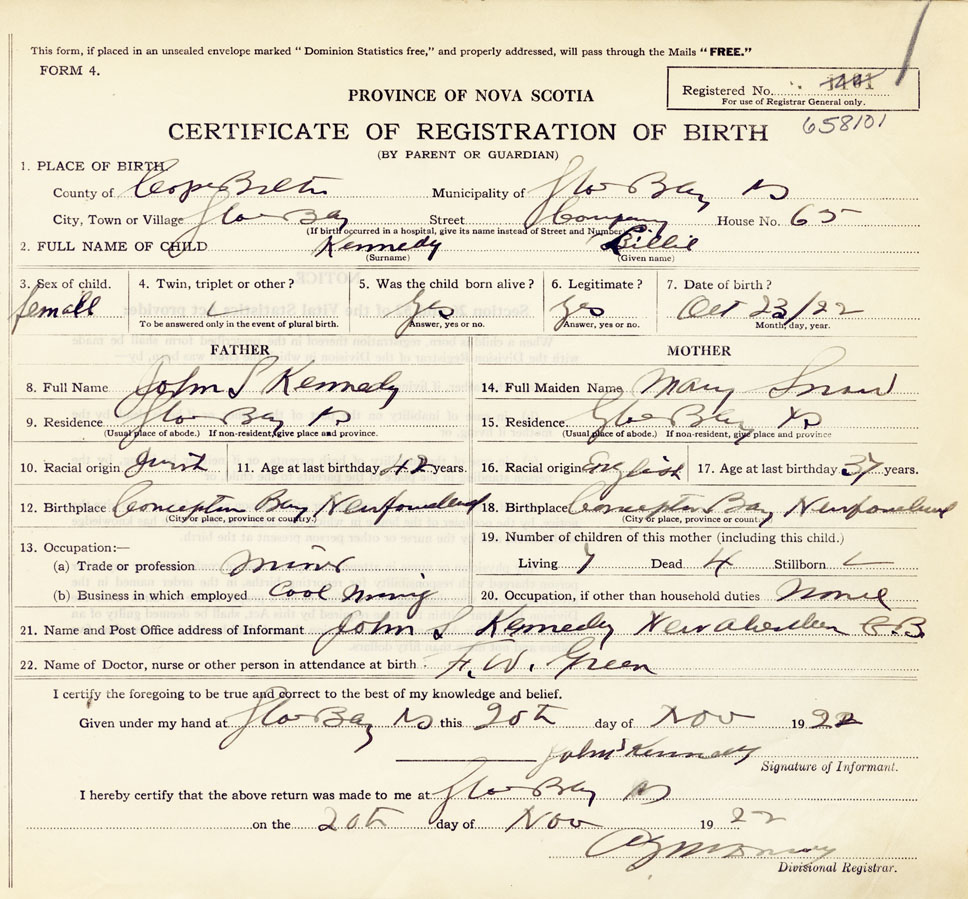 This form, if placed in an unsealed envelope marked “Dominion Statistics free,” and properly addressed, will pass through the Mails “FREE.”
FORM 4.
Registered No.
For use of Registrar General only.
658101
PROVINCE OF NOVA SCOTIA
CERTIFICATE OF REGISTRATION OF BIRTH
(BY PARENT OR GUARDIAN)
1. PLACE OF BIRTH
County of Cape Breton Municipality of Glace Bay NS
City, Town or Village Glace Bay Street Company House No. 65
(If birth occurred in a hospital, give its name instead of Street and Number)
2. FULL NAME OF CHILD Kennedy Lillie
(Surname) (Given name)
3. Sex of child. 4. Twin, triplet or other? 5. Was the child born alive? 6. Legitimate? 7. Date of birth?
female Yes Yes Oct 23/22
To be answered only in the event of plural birth. Answer, yes or no. Answer, yes or no. Month, day, year.
FATHER MOTHER
8. Full Name John S Kennedy 14. Full Maiden Name Mary
9. Residence Glace Bay NS 15. Residence. Glace Bay NS
(Usual place of abode.) If non-resident, give place and province. (Usual place of abode.) If non-resident, give place and province
10. Racial origin 11. Age at last birthday 42 years. 16. Racial origin English 17. Age at last birthday 37 years.
12. Birthplace Conception Bay Newfoundland 18. Birthplace Conception Bay Newfoundland
(City or place, province or country.) (City or place, province or country)
13. Occupation:— 19. Number of children of this mother (including this child.)
(a) Trade or profession Miner Living 7 Dead 4 Stillborn
(b) Business in which employed Cool Mining 20. Occupation, if other than household duties None
21. Name and Post Office address of Informant John S Kennedy New Aberdeen C.B.
22. Name of Doctor, nurse or other person in attendance at birth F. W. Green
I certify the foregoing to be true and correct to the best of my knowledge and belief.
Given under my hand at Glace Bay NS this 20th day of Nov 1922
John S Kennedy
Signature of Informant.
I hereby certify that the above return was made to me at Glace Bay NS
on the 20th day of Nov 1922
Divisional Registrar.